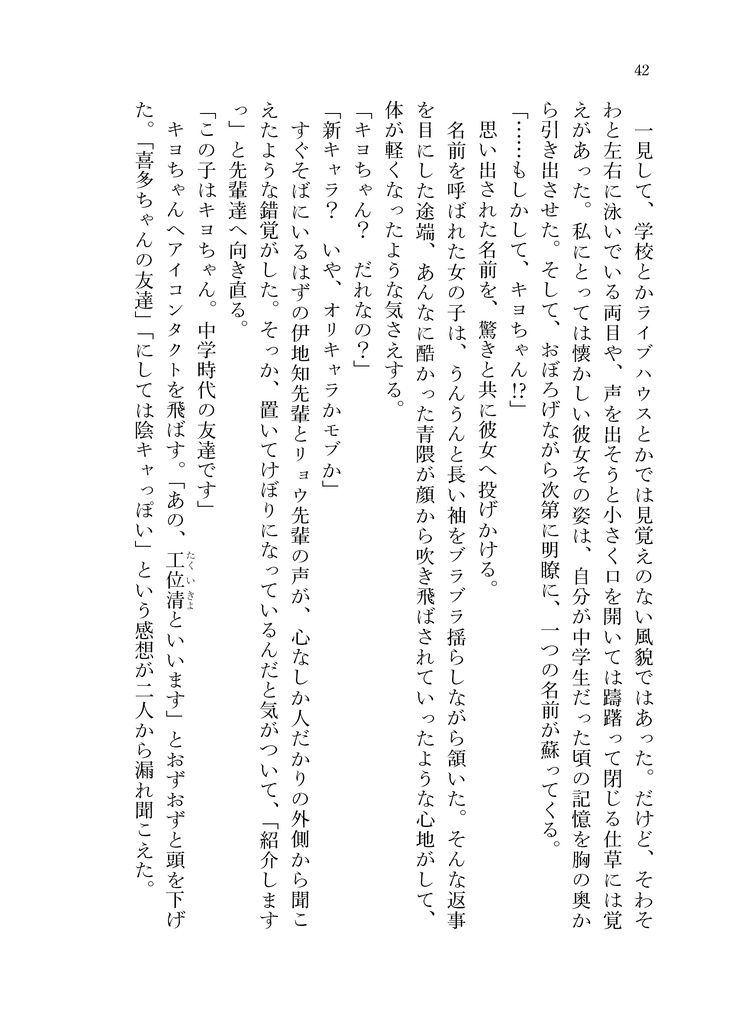 42
　一見して、学校とかライブハウスとかでは見覚えのない風貌ではあった。だけど、そわそ
わと左右に泳いでいる両目や、声を出そうと小さく口を開いては躊躇って閉じる仕草には覚
えがあった。私にとっては懐かしい彼女その姿は、自分が中学生だった頃の記憶を胸の奥か
ら引き出させた。そして、おぼろげながら次第に明瞭に、一つの名前が蘇ってくる。
「……もしかして、キヨちゃん!?」
　思い出された名前を、驚きと共に彼女へ投げかける。
　名前を呼ばれた女の子は、うんうんと長い袖をブラブラ揺らしながら頷いた。そんな返事
を目にした途端、あんなに酷かった青隈が顔から吹き飛ばされていったような心地がして、
体が軽くなったような気さえする。
「キヨちゃん？　だれなの？」
「新キャラ？　いや、オリキャラかモブか」
　すぐそばにいるはずの伊地知先輩とリョウ先輩の声が、心なしか人だかりの外側から聞こ
えたような錯覚がした。そっか、置いてけぼりになっているんだと気がついて、「紹介します
っ」と先輩達へ向き直る。
「この子はキヨちゃん。中学時代の友達です」
　キヨちゃんへアイコンタクトを飛ばす。「あの、工位清たくいきよといいます」とおずおずと頭を下げ
た。「喜多ちゃんの友達」「にしては陰キャっぽい」という感想が二人から漏れ聞こえた。